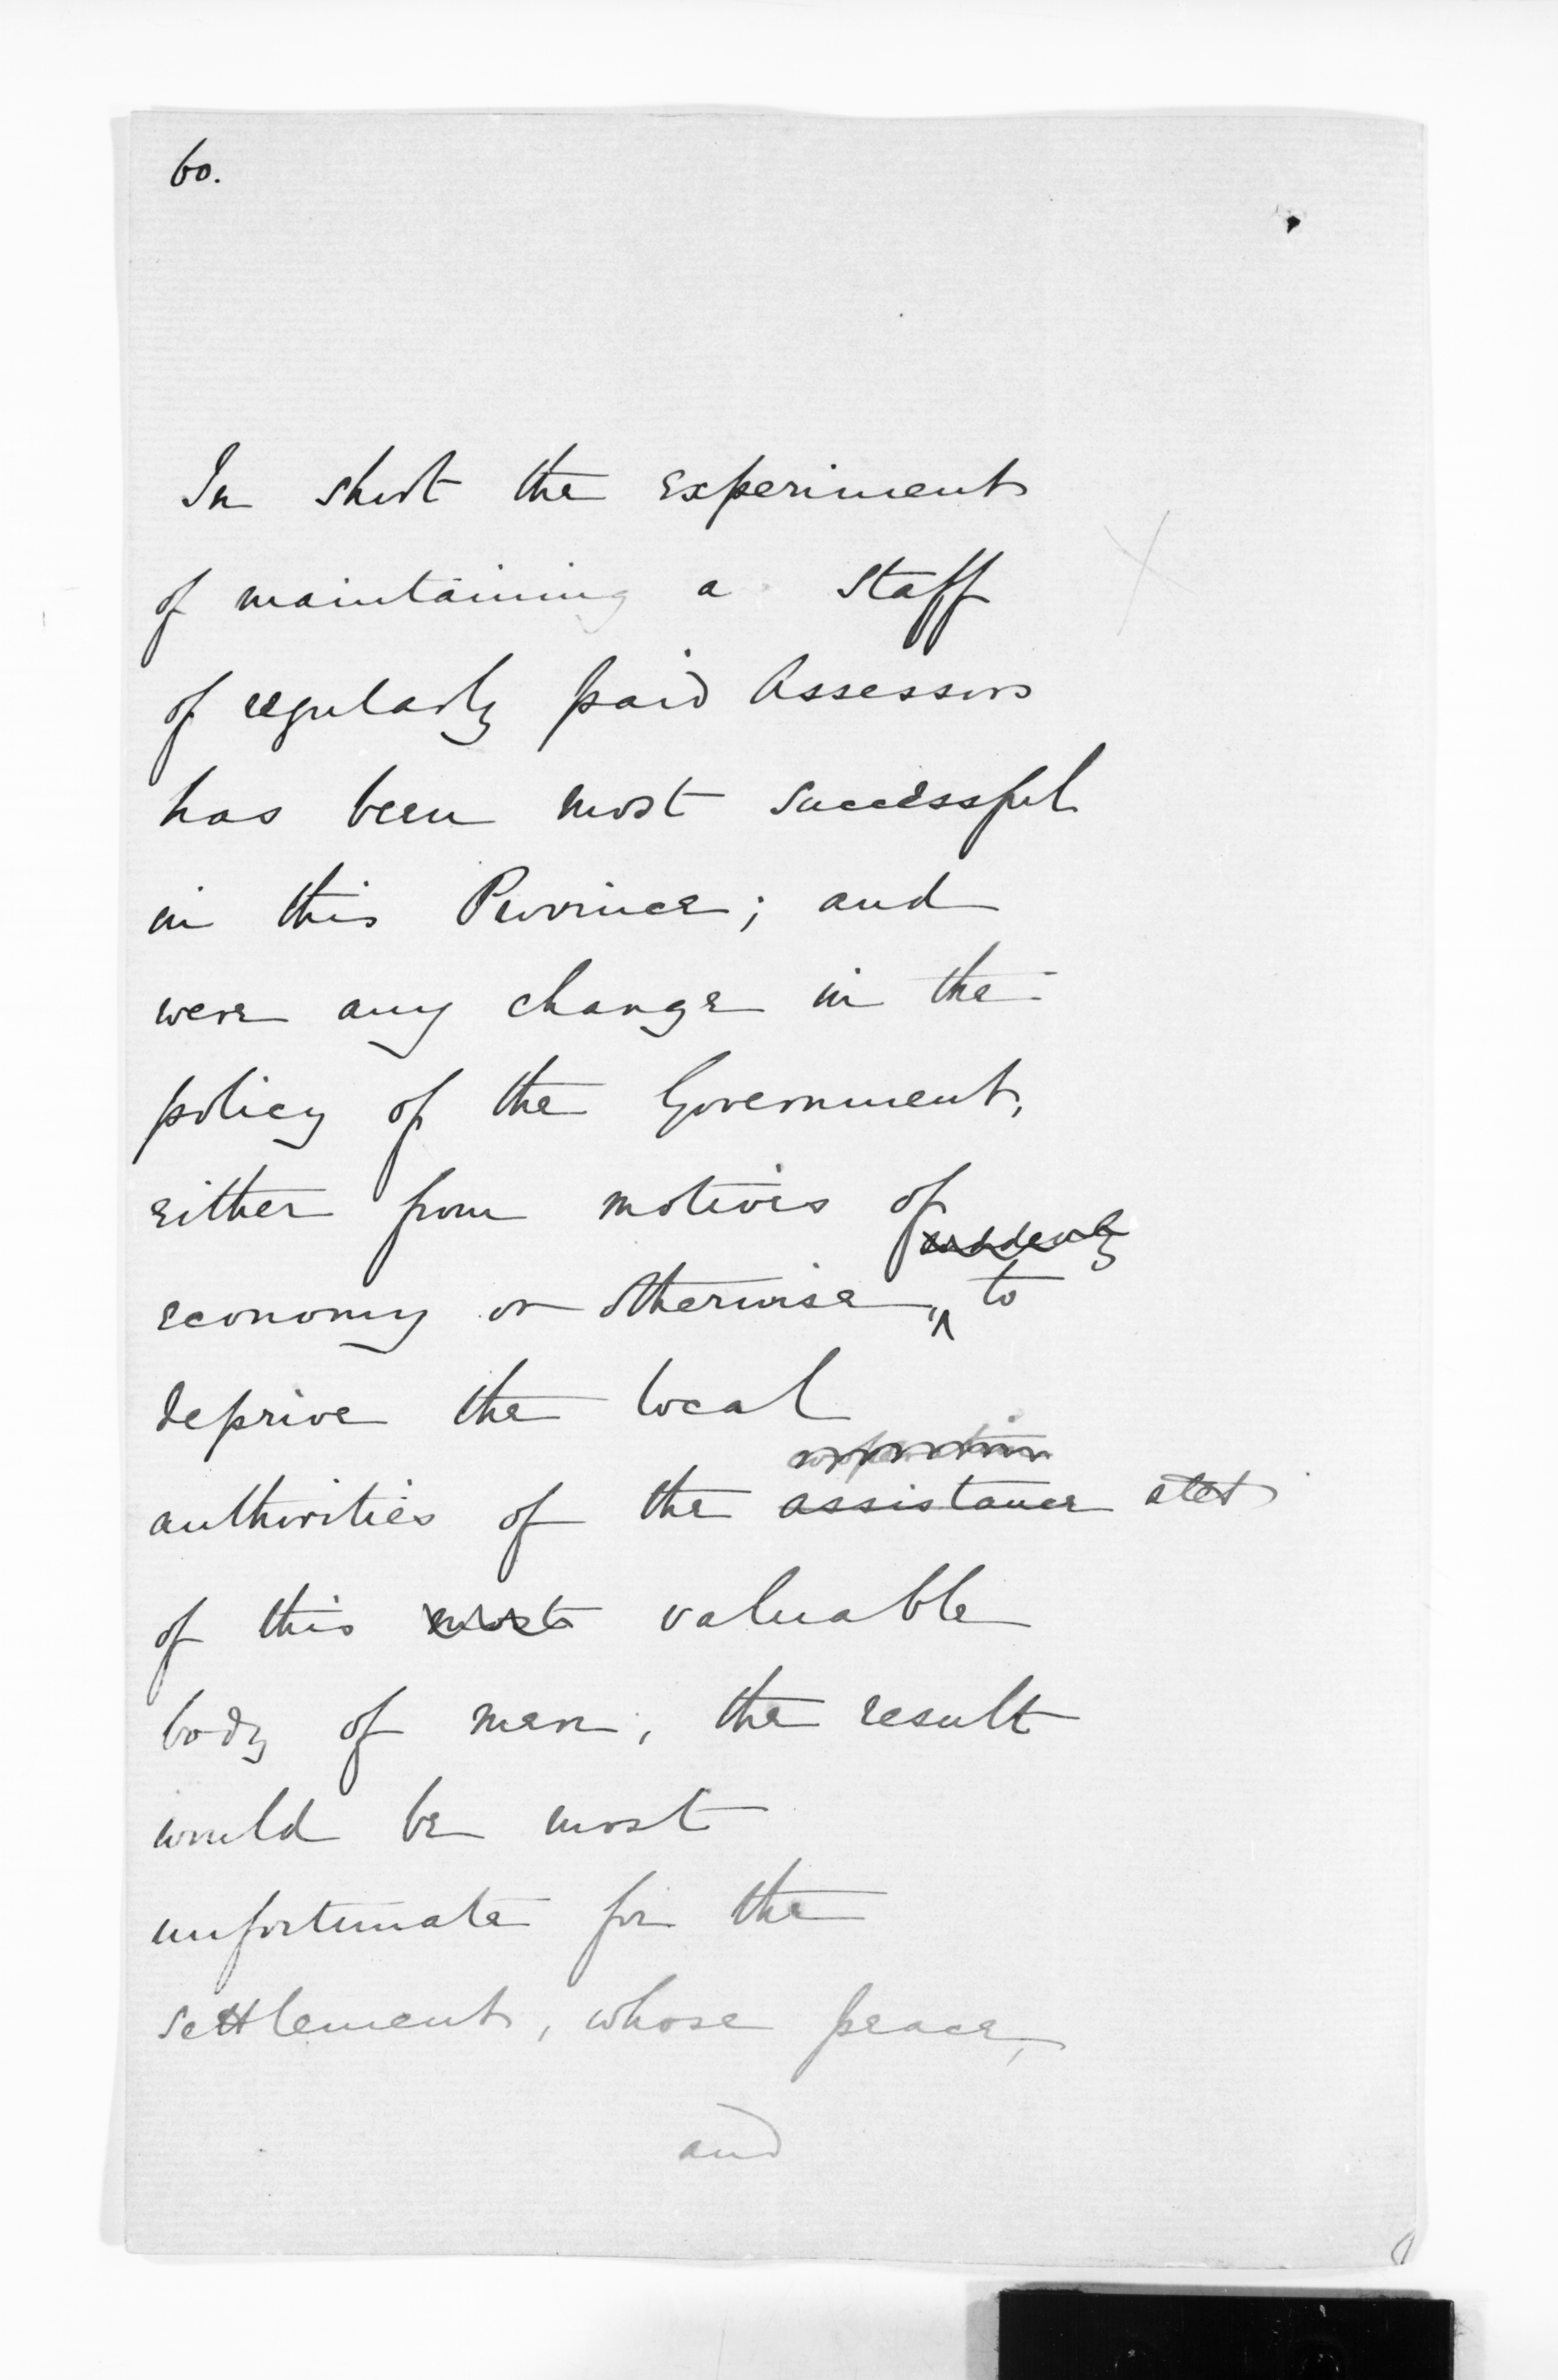 60.
In short the experiment
of maintaining a staff
of regularly paid Assessors
has been most successful
in this Province; and
were any change in the
policy of the Government,
either from motives of
suddenly
economy or otherwise, ^ to
deprive the local
cooperation
authorities of the assistance stet
of this most valuable
body of men, the result
would be most
unfortunate for the
settlement, whose peace,
and